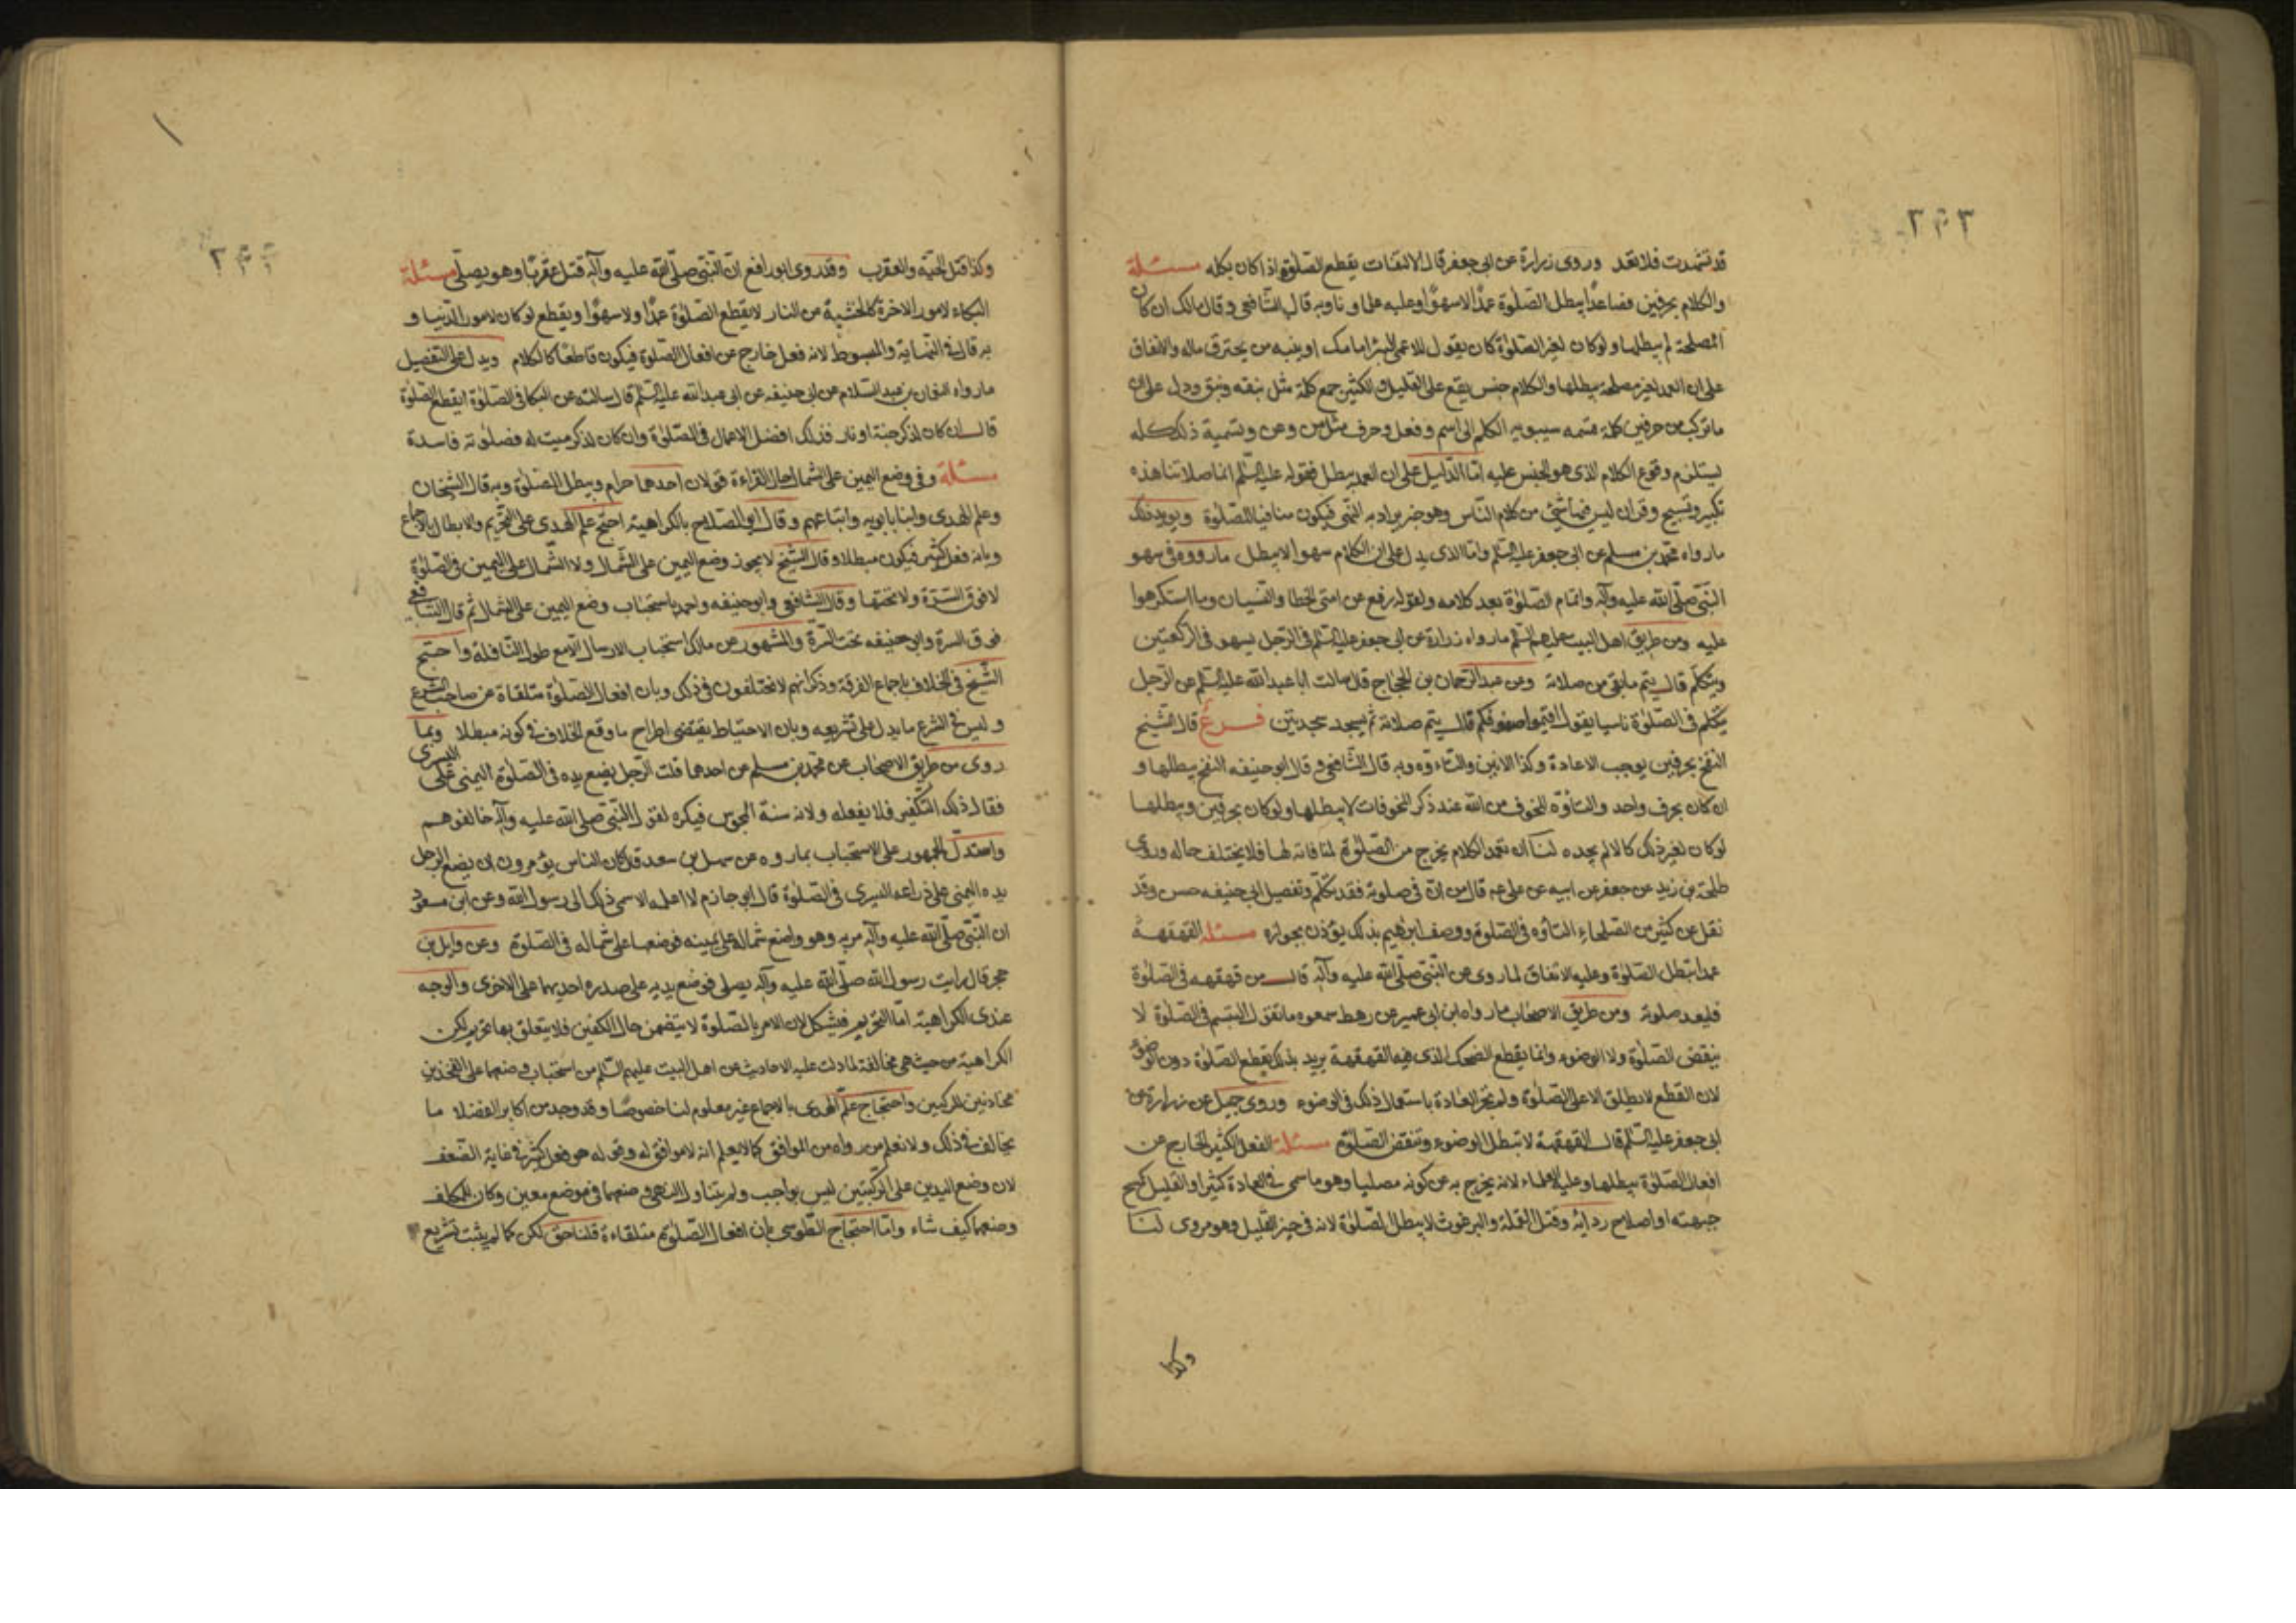 قد تشهدت فلا تعد وروى زرارة عن ابى جعفر قال الالتفات يقطع الصلوة اذا كان بكله مسئلة
والكلام بحرفين فصاعدًا يبطل الصلوة عمدًا لا سهوًا وعليه علماونا وبه قال الشافعى وقال مالك ان كان
لمصلحة لم يبطلها ولو كان لغير الصلوة كان يقول للاعمى البئر امامك او ينبه من يحترق ماله والاتفاق
على ان العمد لغير مصلحة يبطلها والكلام جنس يقع على القليل والكثير جمع كلة مثل نبقه ونبق ودل على ان
ماتركب من حرفين كلة قسمه سيبويه الكلم الى اسم وفعل وحرف مثل من وعن وتسمية ذلك كله
يستلزم وقوع الكلام الذى هو الجنس عليه امّا الدليل على ان العمد يبطل فقوله عليه السّلم انما صلاتنا هذه
تكبير وتسبيح وقران ليس فيها شئ من كلام النّاس وهو خبر يراد به النهى فيكون منافيا للصلوة ويويد ذلك
مارواه محمّد بن مسلم عن ابى جعفر عليه السّلم وامّا الذى يدل على ان الكلام سهوا لا يبطل مارووه فى سهو
النبّى صلّى الله عليه وآله واتمام الصّلوة بعد كلامه ولقوله رفع عن امتى الخطا والنسيان وما استكرهوا
عليه ومن طريق اهل البيت عليهم السّلم مارواه زرارة عن ابى جعفر عليه السّلم فى الرّجل يسهو فى الركعتين
ويتكلّم قال يتم مابقى من صلاته وعن عبد الرّحمان بن الحجّاج قال سالت ابا عبد الله عليه السّلم عن الرّجل
يتكلم فى الصّلوة ناسيا يقول اقيموا صفوفكم قال يتم صلاته ثم يسجد سجدتين فرع قال الشيخ
النفخ بحرفين يوجب الاعادة وكذا الانين والتاوه وبه قال الشّافعى وقال ابو حنيفه النفخ يبطلها و
ان كان بحرف واحد والتاوّه للخوف من الله عند ذكر المخوفات لا يبطلها ولو كان بحرفين ويبطلها
لو كان لغير ذلك كالالم يجده لنا ان تعمد الكلام يخرج من الصّلوة لمنافاته لها فلا يختلف حاله وروى
طلحة بن زيد عن جعفر عن ابيه عن على عم قال من انّ فى صلوته فقد تكلّم وتفصيل ابى حنيفه حسن وقد
نقل عن كثير من الصّلحاء التاوّه فى الصّلوة ووصف ابرهيم بذلك يؤذن بجوازه مسئله القهقهة
عمدا تبطل الصّلوة وعليه الاتفاق لما روى عن النّبّى صلّى الله عليه وآله قال من قهقهه فى الصّلوة
فليعد صلوته ومن طريق الاصحاب مارواه ابن ابى عمير عن رهط سمعوه مانقول التبسم فى الصّلوة لا
ينقض الصّلوة ولا الوضوء وانما يقطع الضحك الذى فيه القهقهة يريد بذلك يقطع الصلوة دون الوضوء
لان القطع لا يطلق الا على الصّلوة ولم تجر العادة باستعمال ذلك فى الوضوء وروى جميل عن زرارة عن
ابى جعفر عليه السّلم قال القهقهة لا تبطل الوضوء وتنقض الصّلوة مسئلة الفعل الكثير الخارج عن
افعال الصّلوة يبطلها وعليه العلماء لانه يخرج به عن كونه مصليا وهو ماسمى فى العادة كثيرا والقليل كمسح
جبهته او اصلاح ردائه وقتل القملة والبرغوث لا يبطل الصّلوة لانه فى حيز القليل وهو مروى لنا
وكذا
وكذا قتل الحيّه والعقرب وقد روى ابو رافع انّ النّبّى صلّى الله عليه وآله قتل عقربًا وهو يصلّى مسئلة
البكاء لامور الاخرة كالخشية من النار لا يقطع الصّلوة عمدًا ولا سهوًا ويقطع لو كان لامور الدّنيا و
به قال فى النّهاية والمبسوط لانه فعل خارج عن افعال الصّلوة فيكون قاطعًا كالكلام ويدل على التفصيل
مارواه النعمان بن عبد السّلام عن ابى حنيفه عن ابى عبد الله عليه السّلم قال سالته عن البكا فى الصّلوة ايقطع الصّلوة
قال ان كان لذكر جنة او نار فذلك افضل الاعمال فى الصّلوة وان كان لذكر ميت له فصلوته فاسدة
مسئلة وفى وضع اليمين على الشمال حال القراءة قولان احدهما حرام ويبطل الصّلوة وبه قال الشيخان
وعلم الهدى وابنا بابويه واتباعهم وقال ابو الصّلاح بالكراهية احتج علم الهدى على التحريم والابطال بالاجماع
وبانه فعل كثير فيكون مبطلا وقال الشيخ لا يجوز وضع اليمين على الشّمال ولا الشّمال على اليمين فى الصّلوة
لا فوق السّرّة ولا تحتها وقال الشافعى وابو حنيفه واحمد باستحباب وضع اليمين على الشمال ثم قال الشافعى
فوق السرة وابو حنيفه تحت السّرّة والمشهور عن مالك استحباب الارسال الا مع طول النّافلة واحتج
الشّيخ فى الخلاف باجماع الفرقة وذكر انهم لا يختلفون فى ذلك وبان افعال الصّلوة متلقاة عن صاحب الشرع
وليس فى الشرع مايدل على تشريعه وبان الاحتياط يقتضى اطراح ماوقع الخلاف فى كونه مبطلا وبما
روى من طريق الاصحاب عن محمّد بن مسلم عن احدهما قلت الرّجل يضع يده فى الصّلوة اليمنى على اليسرى
فقال ذلك التكفير فلا يفعله ولانه سنة المجوس فيكره لقول النّبّى صلى الله عليه وآله خالفوهم
واستدلّ الجمهور على الاستحباب بما روه عن سهل بن سعد قال كان الناس يؤمرون ان يضع الرجل
يده اليمنى على ذراعه اليسرى فى الصّلوة قال ابو حازم لا اعلمه الا سمى ذلك الى رسول الله وعن ابن مسعود
ان النّبّى صلّى الله عليه وآله مرّ به وهو واضع شماله على يمينه فوضعها على شماله فى الصّلوة وعن وايل بن
حجر قال رايت رسول الله صلّى الله عليه وآله يصلى فوضع يديه على صدره احديهما على الاخرى والوجه
عندى الكراهية امّا التحريم فيشكل لان الامر بالصّلوة لا يتضمن حال الكفين فلا يتعلق بها تحريم لكن
الكراهية من حيث هى مخالفة لما دلت عليه الاحاديث عن اهل البيت عليهم السّلم من استحباب وضعهما على الفخذين
محاذيتين للركبتين واحتجاج علم الهدى بالاجماع غير معلوم لنا خصوصًا وقد وجد من اكابر الفضلا ما
يخالف فى ذلك ولا نعلم من رواه من الموافق كما لا يعلم انه لا موافق له وقوله هو فعل كثير فى غاية الضّعف
لان وضع اليدين على الركبتين ليس بواجب ولم يتناول النهى وضعهما فى موضع معين وكان للمكلف
وضعهما كيف شاء وامّا احتجاج الطّوسى بان افعال الصّلوة متلقاءة قلنا حق لكن كما لم يثبت تشريع